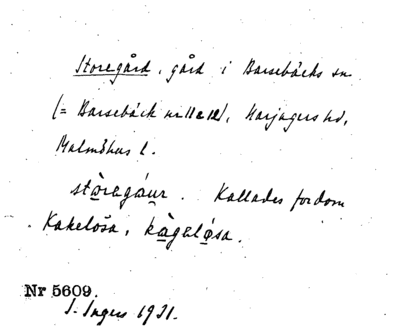 Storegård, gård i Barsebäcks sn
(= Barsebäck nr 11 o 12), Harjagers hd,
Malmöhus l.
stòregáur. Kallades fordom
Kakelösa, kàgeløsa.
Nr 5609.
I. Ingers 1931.